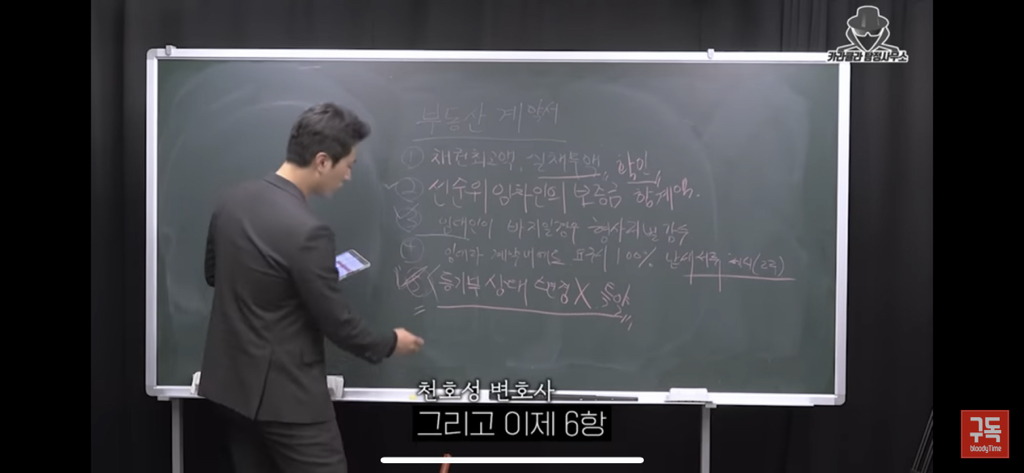 카라큘라 탐정사무소
부동산 계약서
① 채권최고액, 실채무액, 확인
② 선순위 임차인의 보증금 합계액.
③ 임대인이 바지일경우 형사처벌감수
④ 임차인 100% 서류 제시
⑤ 등기부 상태 변경X 특약
천호성 변호사
그리고 이제 6항
구독
bloodyTime